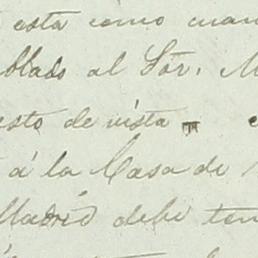 esta como cuan
blado al Sör. M
esto de vista
á la Casa de
Madrid debe ten